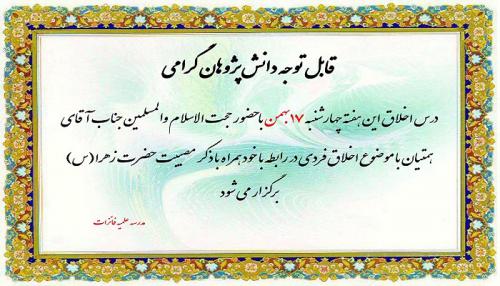 قابل توجه دانش پژوهان گرامی
درس اخلاق این هفته چهارشنبه ۱۷ بهمن باحضور حجت الاسلام والمسلمین جناب آقای
همتیان با موضوع اخلاق فردی در رابطه با خود همراه با ذکر مصیبت حضرت زهرا (س)
برگزار می شود
مدرسه علمیه فائزات